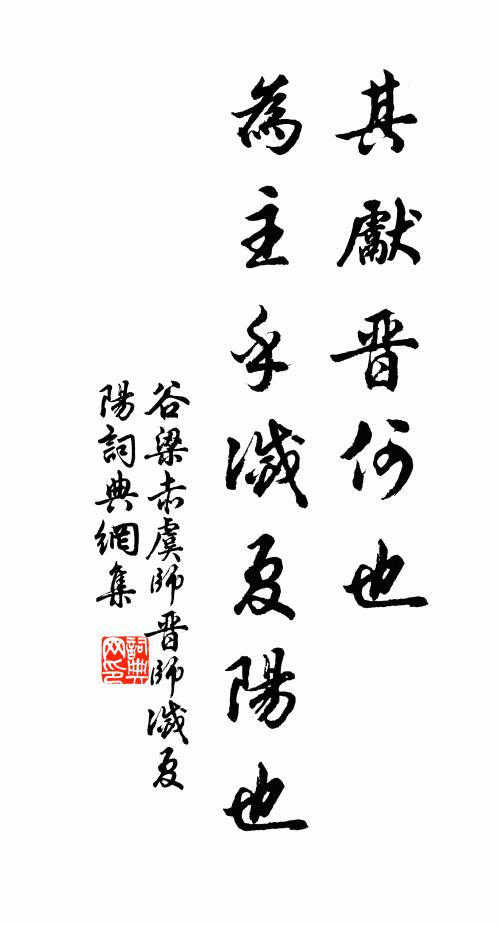 其獻晋何也
為主乎滅夏陽也
谷梁赤虞師晋師滅夏
陽詞典網集
詞典网印